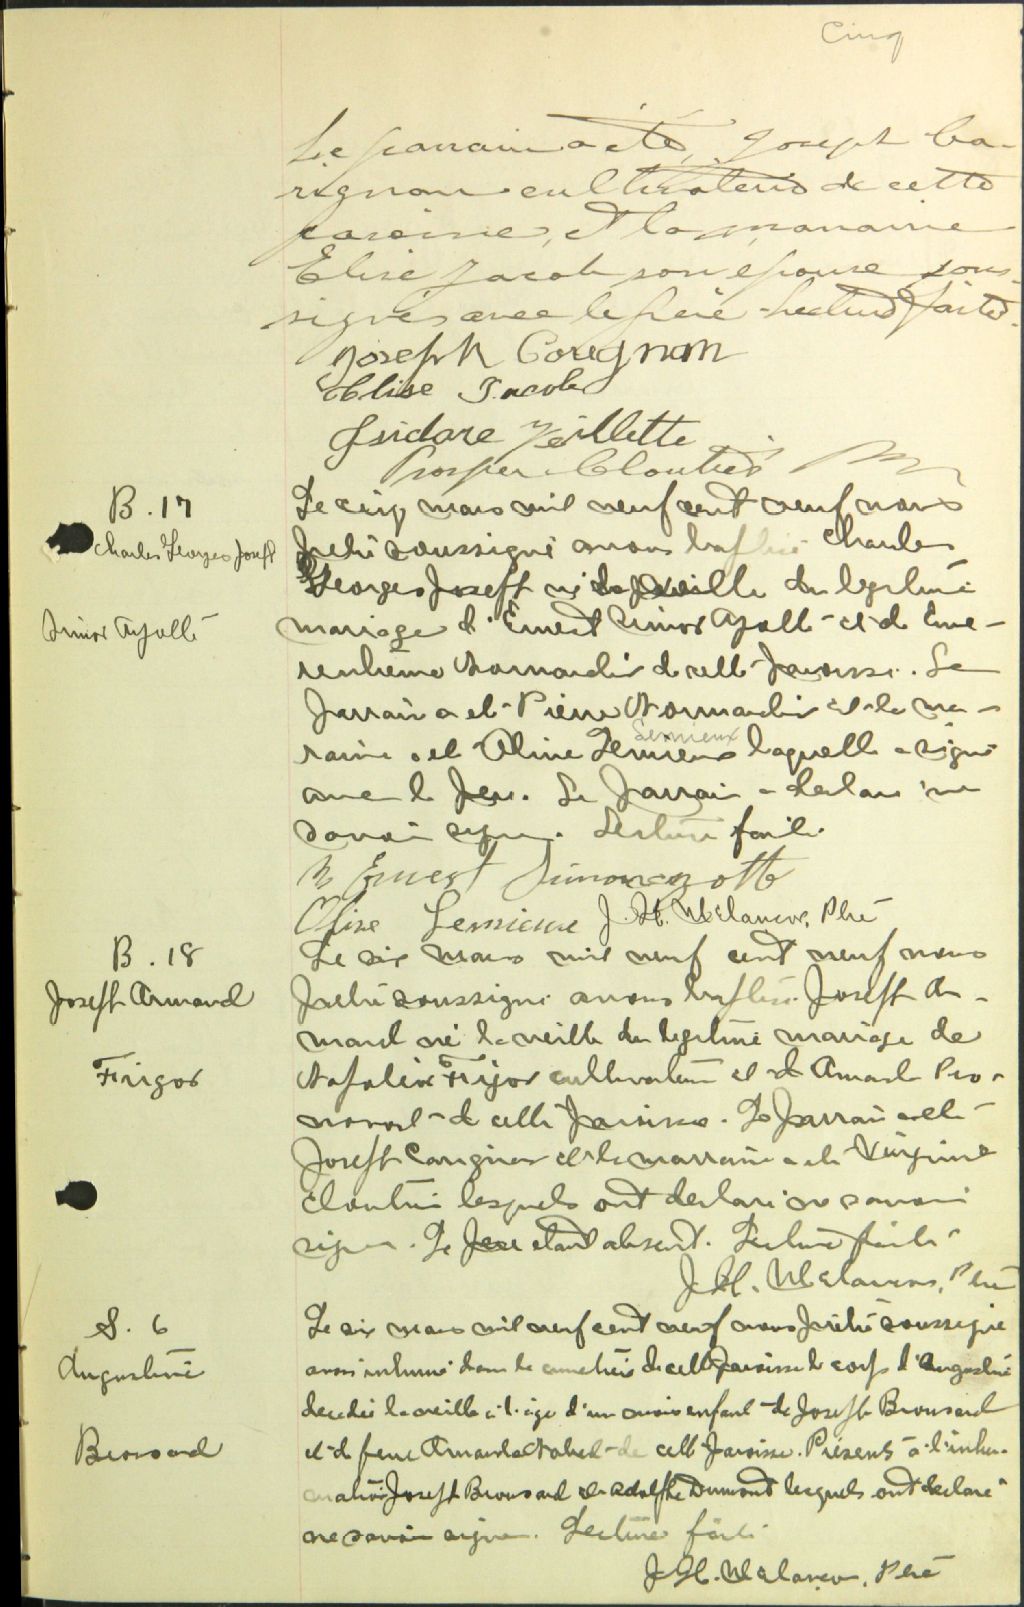 Cinq
Le parrain a été, Joseph Ca-
rignan cultivateur de cette
paroisse, et la marraine
Elise Jacob son épouse sous-
signés avec le père. Lecture faite.
Joseph Carignan
Elise Jacob
Isidore Veillette
Prosper Cloutier
B. 17
Charles Georges Joseph
Le cinq mars mil neuf cent neuf nous
prêtre soussigné avons baptisé Charles
Georges Joseph né la veille du légitime
mariage d'Ernest et de Eme-
rentienne Normandin de cette paroisse. Le
parrain a été Pierre Normandin et la ma-
raine a été Aline Lemieux Lemieux laquelle a signé
avec le père. Le parrain a déclaré ne
savoir signer. Lecture faite.
Ernest
Lemieux J. H. Pltre
B. 18
Joseph Armand
Frigon
Le six mars mil neuf cent neuf nous
prêtre soussigné avons baptisé Joseph Ar-
mand né la veille du légitime mariage de
Napoléon Frigon cultivateur et de Amanda Pro-
de cette paroisse. Le parrain a été
Joseph Carignan et la marraine a été Virginie
Cloutier lesquels ont déclaré ne savoir
signer. Le père étant absent. Lecture faite
J. H. Ptre
S. 6
Augustine
Broussard
Le six mars mil neuf cent neuf nous prêtre soussigné
avons inhumé dans le cimetière de cette paroisse le corps d'Augustine
décédée la veille à l'âge d'un mois enfant de Joseph Broussard
et de feue Amanda de cette paroisse. Présents à l'inhu-
mation Joseph Broussard et Adolphe Dumont lesquels ont déclaré
ne savoir signer. Lecture faite.
J. H. Ptre